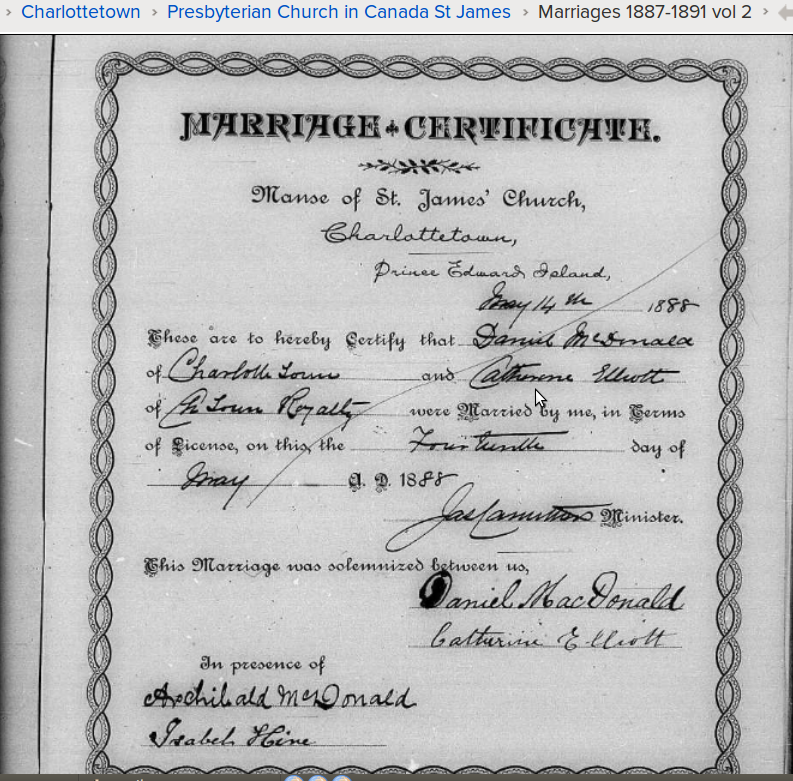 › Charlottetown › Presbyterian Church in Canada St James › Marriages 1887-1891 vol 2 ›
MARRIAGE CERTIFICATE.
Manse of St. James' Church,
Charlottetown,
Prince Edward Island,
May 14th 1888
These are to hereby Certify that Daniel McDonald
of Charlotte Town and Catherine Elliott
of Ch Town Royalty were Married by me, in Terms
of License, on this, the Fourteenth day of
May A. D. 1888
Jas Carruthers Minister.
This Marriage was solemnized between us,
Daniel MacDonald
Catherine Elliott
In presence of
Archibald McDonald
Isabel Hine